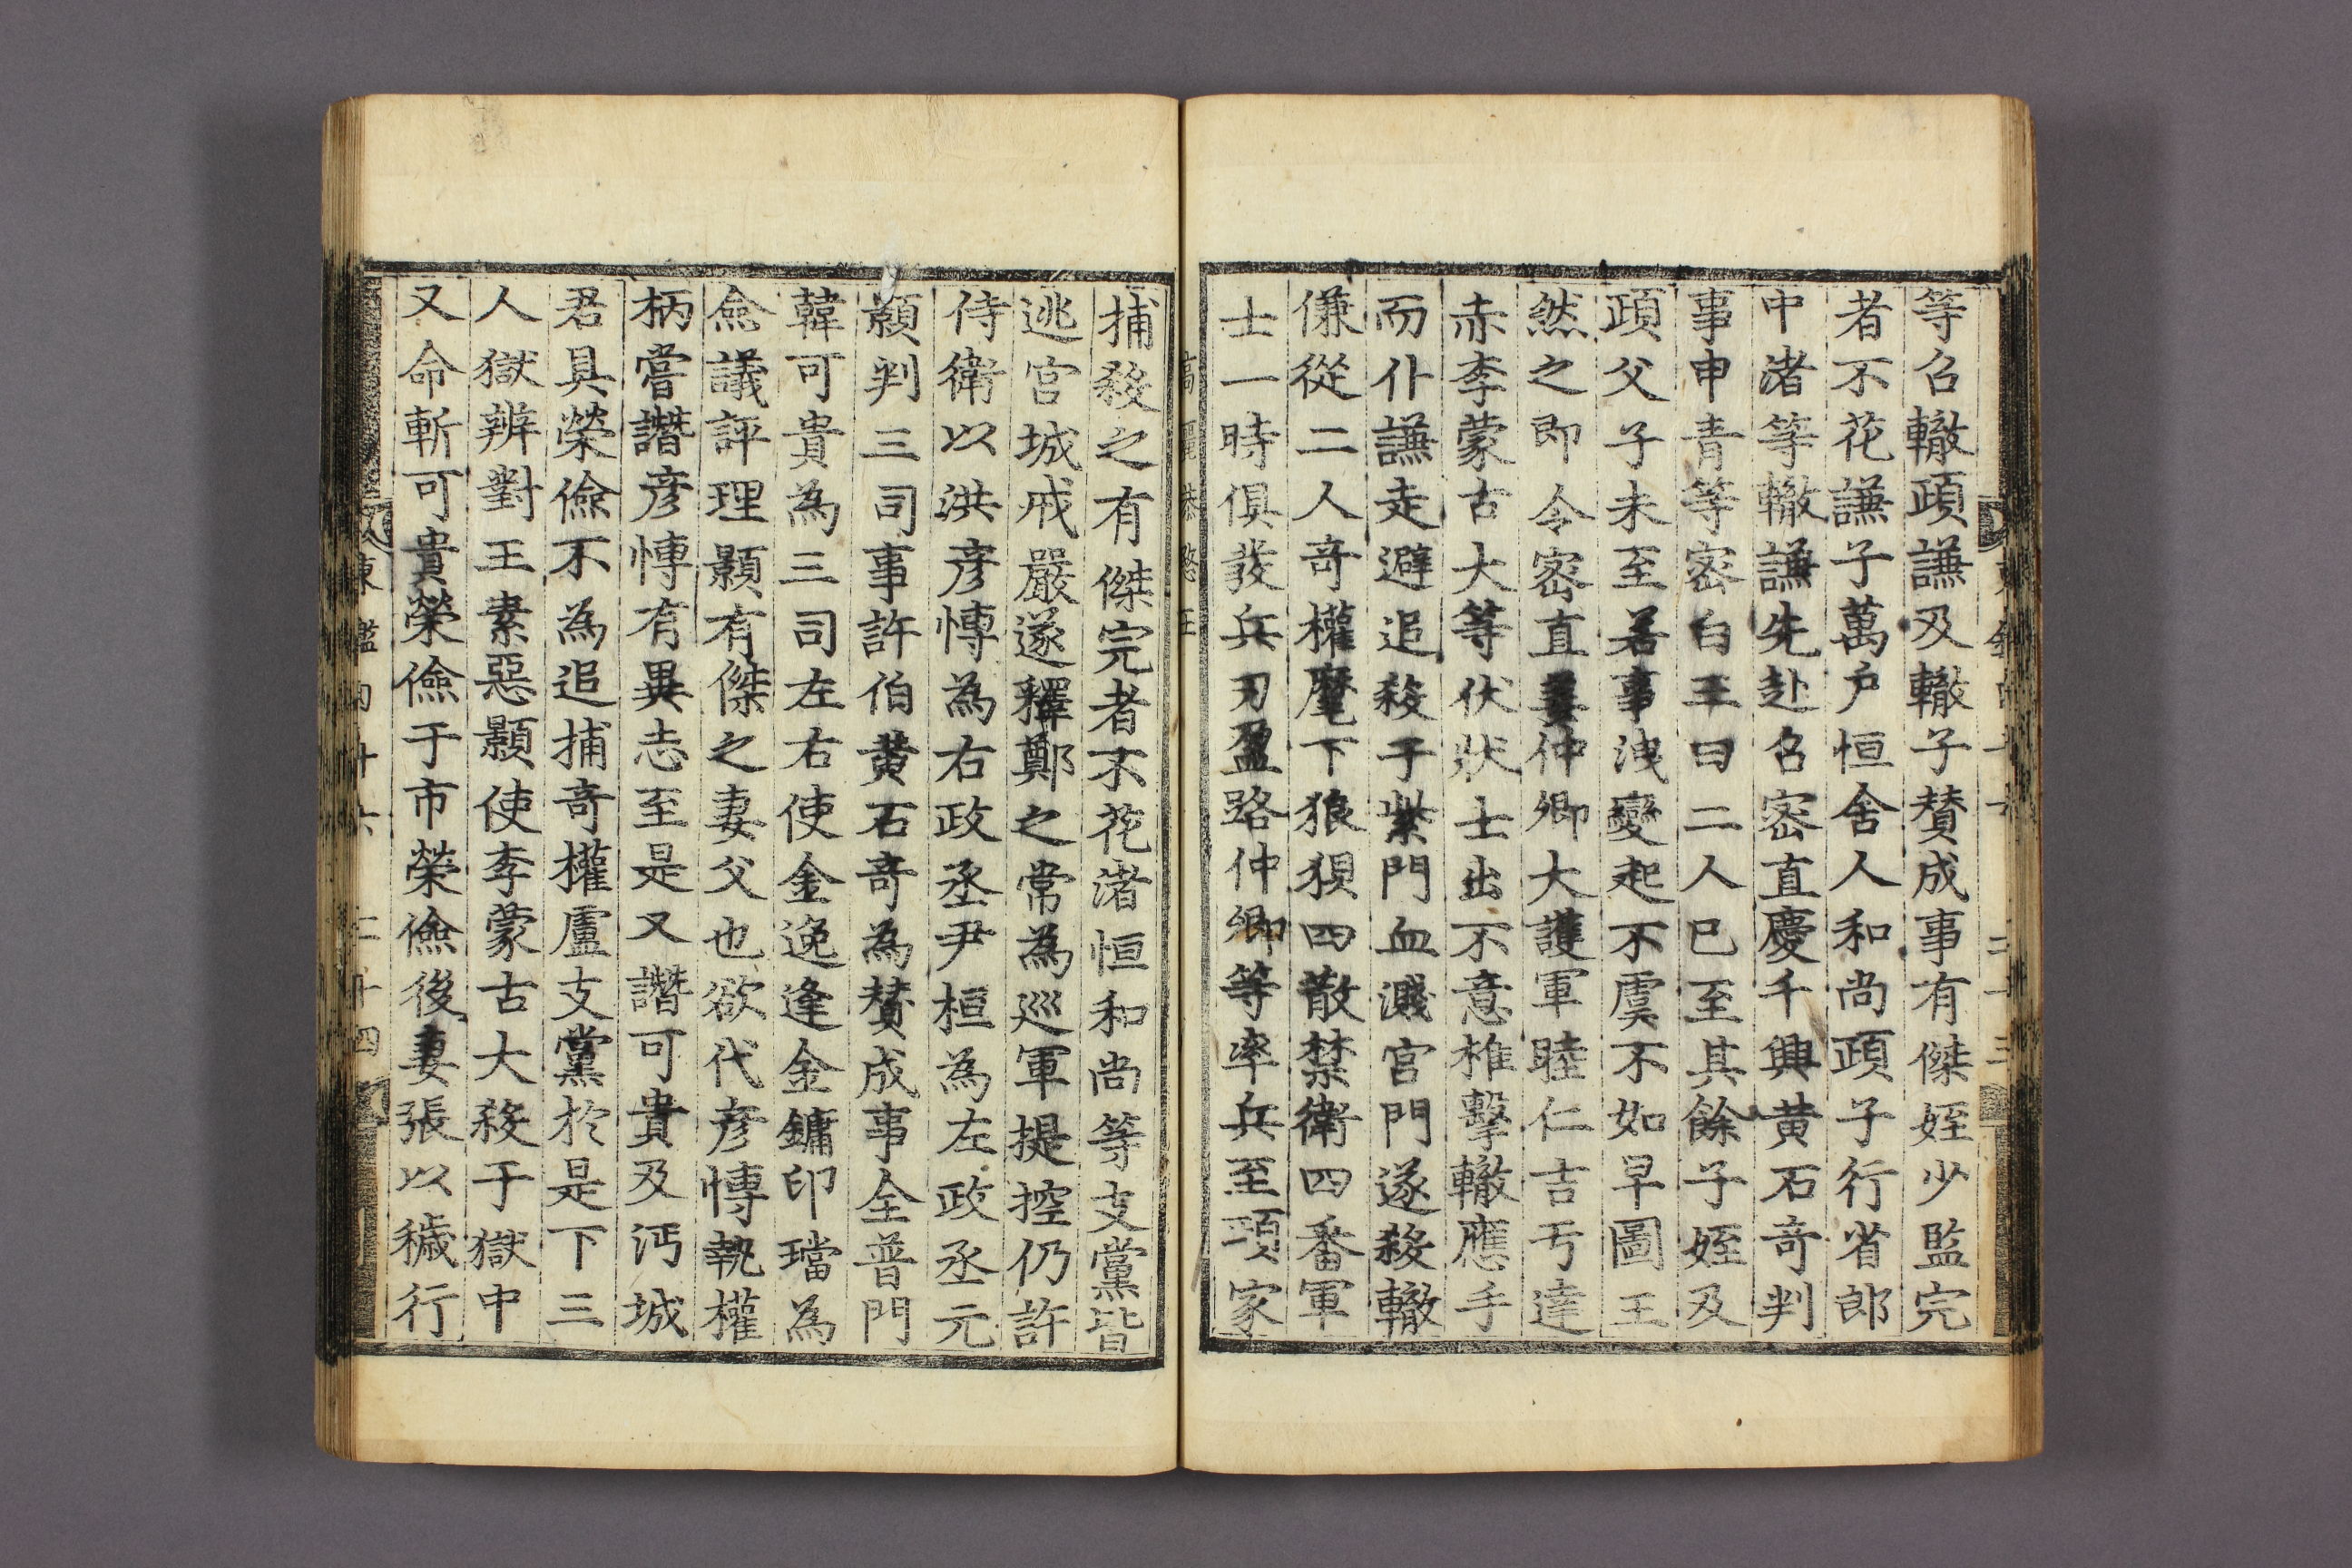 等召轍頙謙及轍子賛成事有傑姪少監完
者不花謙子萬戶恒舍人和尚頙子行省郎
中渚等轍謙先赴召密直慶千興黃石奇判
事申青等密白王曰二人已至其餘子姪及
頙父子未至若事洩變起不虞不如早圖王
然之即令密直姜仲卿大護軍睦仁吉亐達
赤李蒙古大等伏壯士出不意椎擊轍應手
而仆謙走避追殺于紫門血濺宮門遂殺轍
傔從二人奇權麾下狼狽四散禁衛四番軍
士一時俱發兵刃盈路仲卿等率兵至頙家
高麗恭愍王
捕殺之有傑完者不花渚恒和尚等支黨皆
逃宮城戒嚴遂釋鄭之常為巡軍提控仍許
侍衛以洪彥慱為右政丞尹桓為左政丞元
顥判三司事許伯黃石奇為賛成事全普門
韓可貴為三司左右使金逸逢金鏞印璫為
僉議評理顥有傑之妻父也欲代彥慱執權
柄嘗譖彥慱有異志至是又譖可貴及沔城
君具榮儉不為追捕奇權盧支黨於是下三
人獄辨對王素惡顥使李蒙古大殺于獄中
又命斬可貴榮儉于市榮儉後妻張以穢行
東鑑四十六 二十四